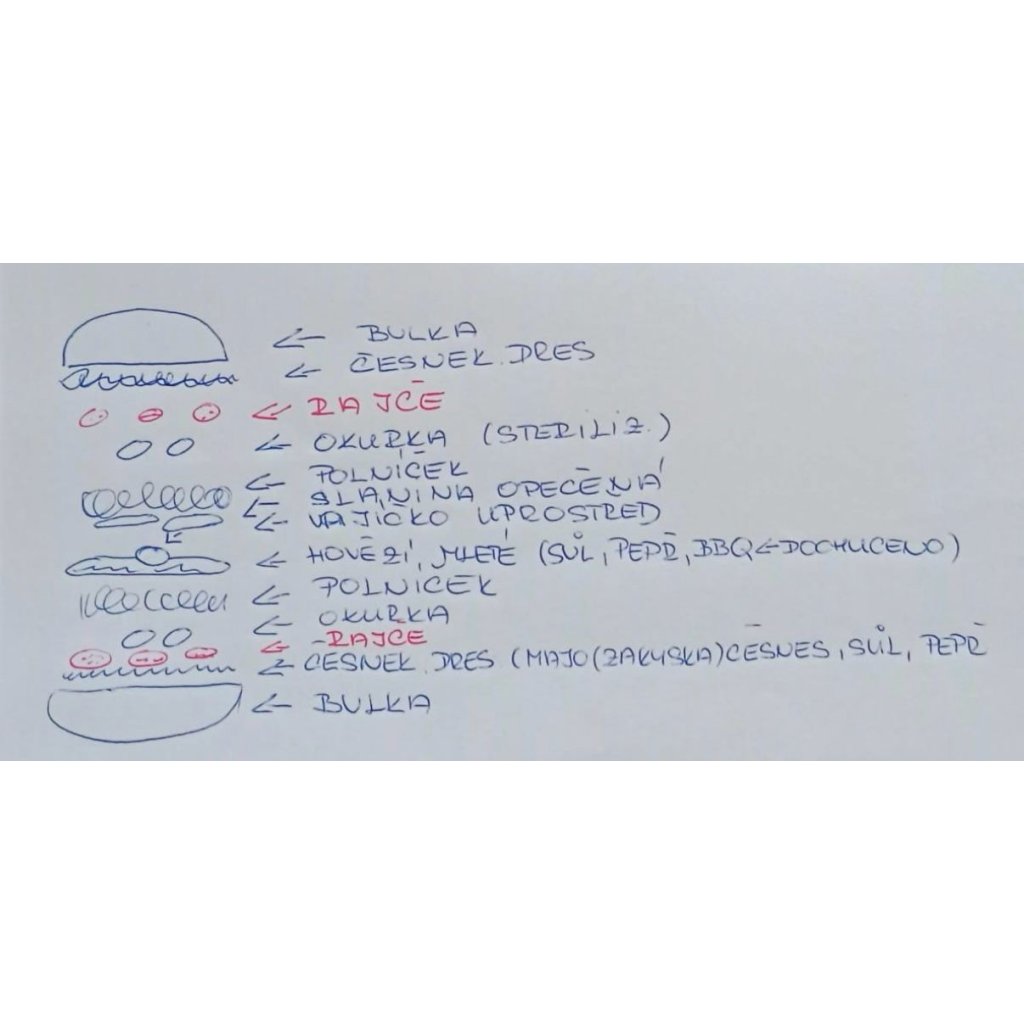 BULKA
ČESNEK. DRES
RAJČE
OKURKA (STERILIZ.)
POLNÍČEK
SLANINA OPEČENÁ
VAJÍČKO UPROSTRED
HOVĚZÍ, MLETÉ (SŮL, PEPŘ, BBQ ← DOCHUCENO)
POLNÍCEK
OKURKA
RAJCE
CESNEK. DRES (MAJO (ZAKYSKA) CESNES, SŮL, PEPŘ
BULKA